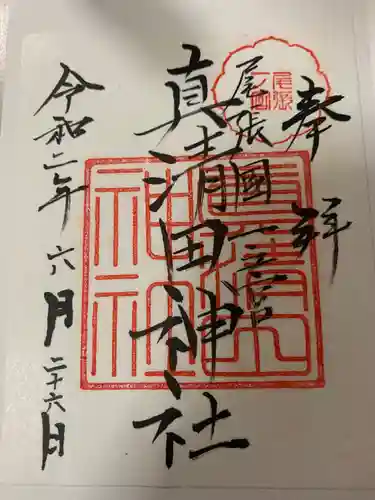 奉拝
尾張國一之宮
真清田神社
令和二年六月二十六日
尾張
一宮
真清田
神社